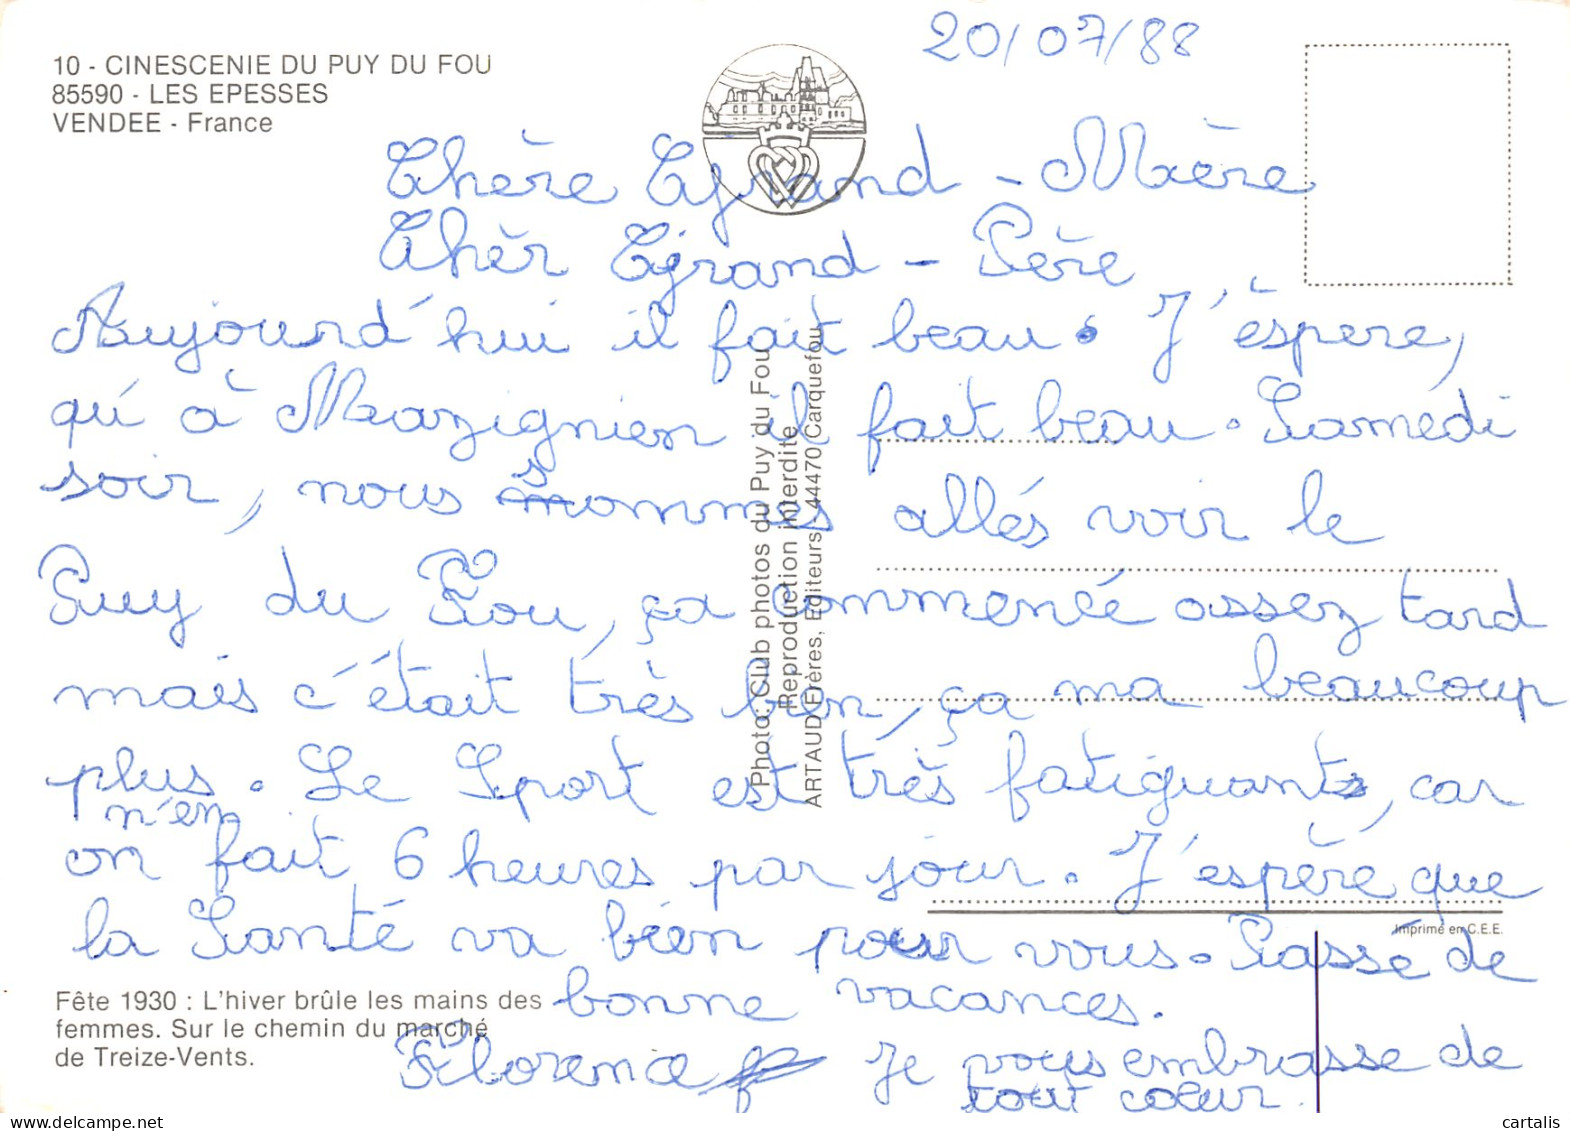 20/07/88
10 - CINESCENIE DU PUY DU FOU
85590 - LES EPESSES
VENDEE - France
Chère Grand - Mère
Chèr Grand - Père
Aujourd'hui il fait beau. J'éspere,
qú à Mazignien il fait beau. Samedi
soir, nous sommes allés voir le
Puy du Fou, ça commencé assez tard
mais c'était très bien, ça ma beaucoup
plus. Le Sport est très fatiguant, car
on n'en fait 6 heures par jour. J'espère que
la Santé va bien pour vous. Passé de
bonne vacances.
Florence Je vous embrasse de
tout coeur.
Photo: Club photos du Puy du Fou
Reproduction interdite
ARTAUD Frères, Editeurs - 44470 Carquefou
Imprimé en C.E.E.
Fête 1930 : L'hiver brûle les mains des
femmes. Sur le chemin du marché
de Treize-Vents.
cartalis